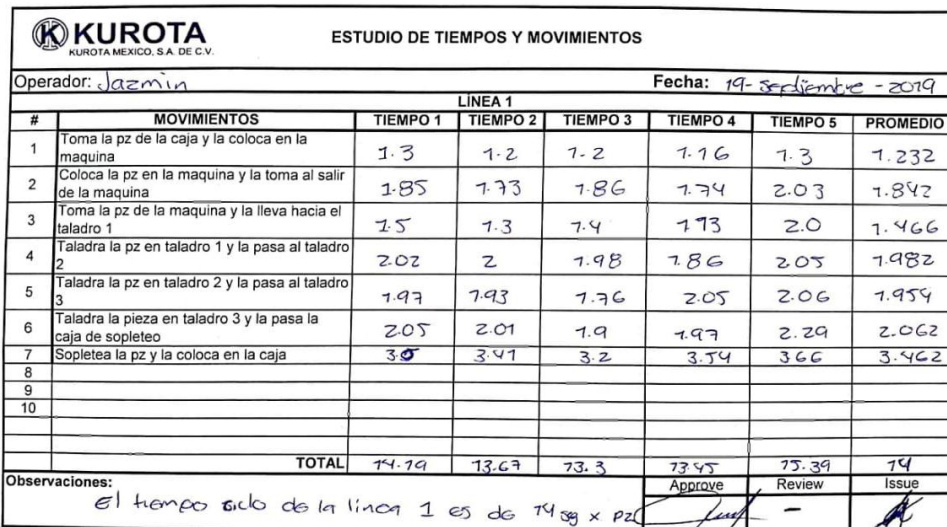 KUROTA
KUROTA MEXICO, S.A. DE C.V.
ESTUDIO DE TIEMPOS Y MOVIMIENTOS
Operador: Jazmin Fecha: 19-Septiembre-2019
LÍNEA 1
# MOVIMIENTOS TIEMPO 1 TIEMPO 2 TIEMPO 3 TIEMPO 4 TIEMPO 5 PROMEDIO
1 Toma la pz de la caja y la coloca en la
maquina 1.3 1.2 1.2 1.16 1.3 1.232
2 Coloca la pz en la maquina y la toma al salir
de la maquina 1.85 1.73 1.86 1.74 2.03 1.842
3 Toma la pz de la maquina y la lleva hacia el
taladro 1 1.5 1.3 1.4 1.13 2.0 1.466
4 Taladra la pz en taladro 1 y la pasa al taladro
2 2.02 2 1.98 1.86 2.05 1.982
5 Taladra la pz en taladro 2 y la pasa al taladro
3 1.97 1.93 1.76 2.05 2.06 1.954
6 Taladra la pieza en taladro 3 y la pasa la
caja de sopleteo 2.05 2.01 1.9 1.97 2.29 2.062
7 Sopletea la pz y la coloca en la caja 3.5 3.41 3.2 3.54 3.66 3.462
8
9
10
TOTAL 14.19 13.67 13.3 13.45 15.39 14
Observaciones: Approve Review Issue
El tiempo ciclo de la linea 1 es de 14 seg x pz -